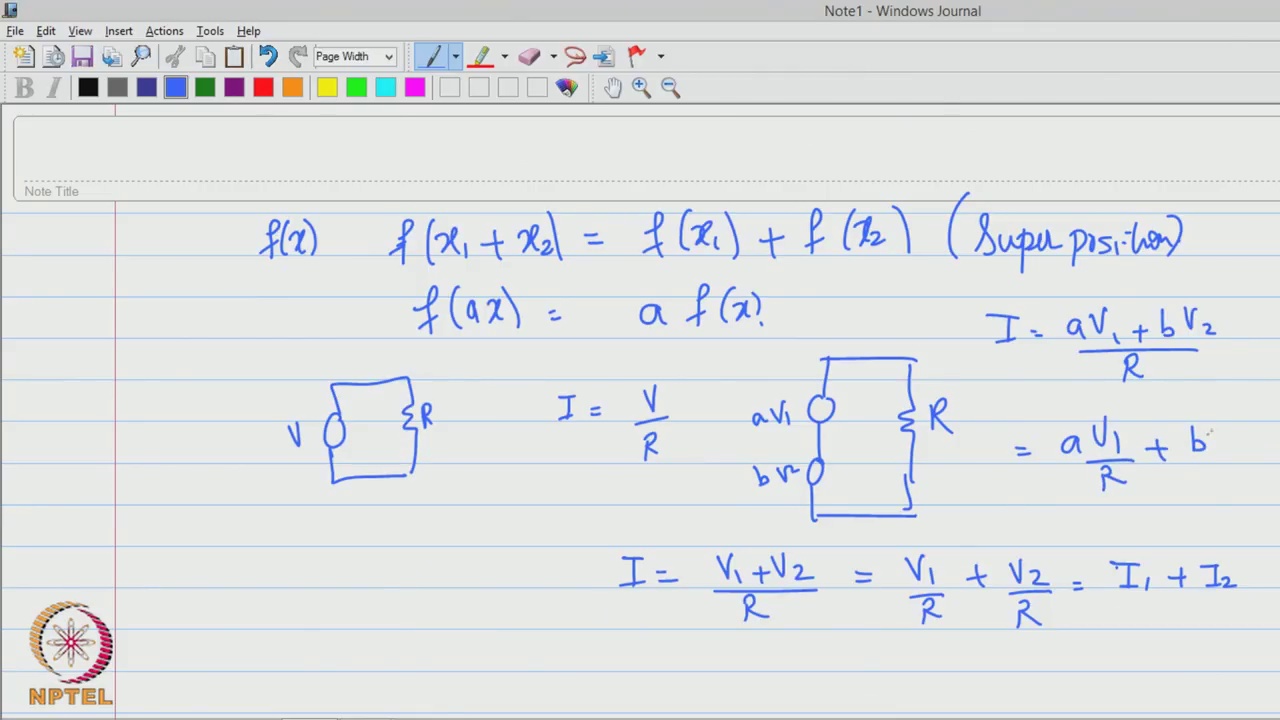 Note1 - Windows Journal
File Edit View Insert Actions Tools Help
Page Width
B I
Note Title
f(x) f(x1 + x2) = f(x1) + f(x2) (Superposition)
f(ax) = a f(x)
I = aV1 + bV2 / R
V R I = V / R aV1 bV2 R
= a V1 / R + b
I = V1 + V2 / R = V1 / R + V2 / R = I1 + I2
NPTEL